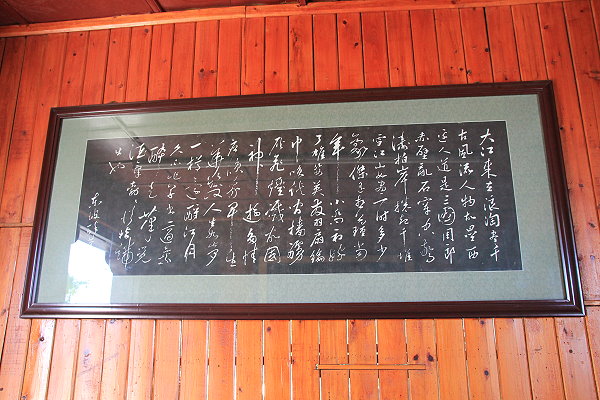 大江東去浪淘盡千
古風流人物故壘西
邊人道是三國周郎
赤壁亂石穿空驚
濤拍岸捲起千堆
雪江山如畫一時多少
豪傑遙想公瑾當
年小喬初嫁
了雄姿英發羽扇綸
巾談笑間檣艣
灰飛煙滅故國
神遊多情
應笑我早生
華髮人生如夢
一樽還酹江月
久不作草書適
醉走筆覺